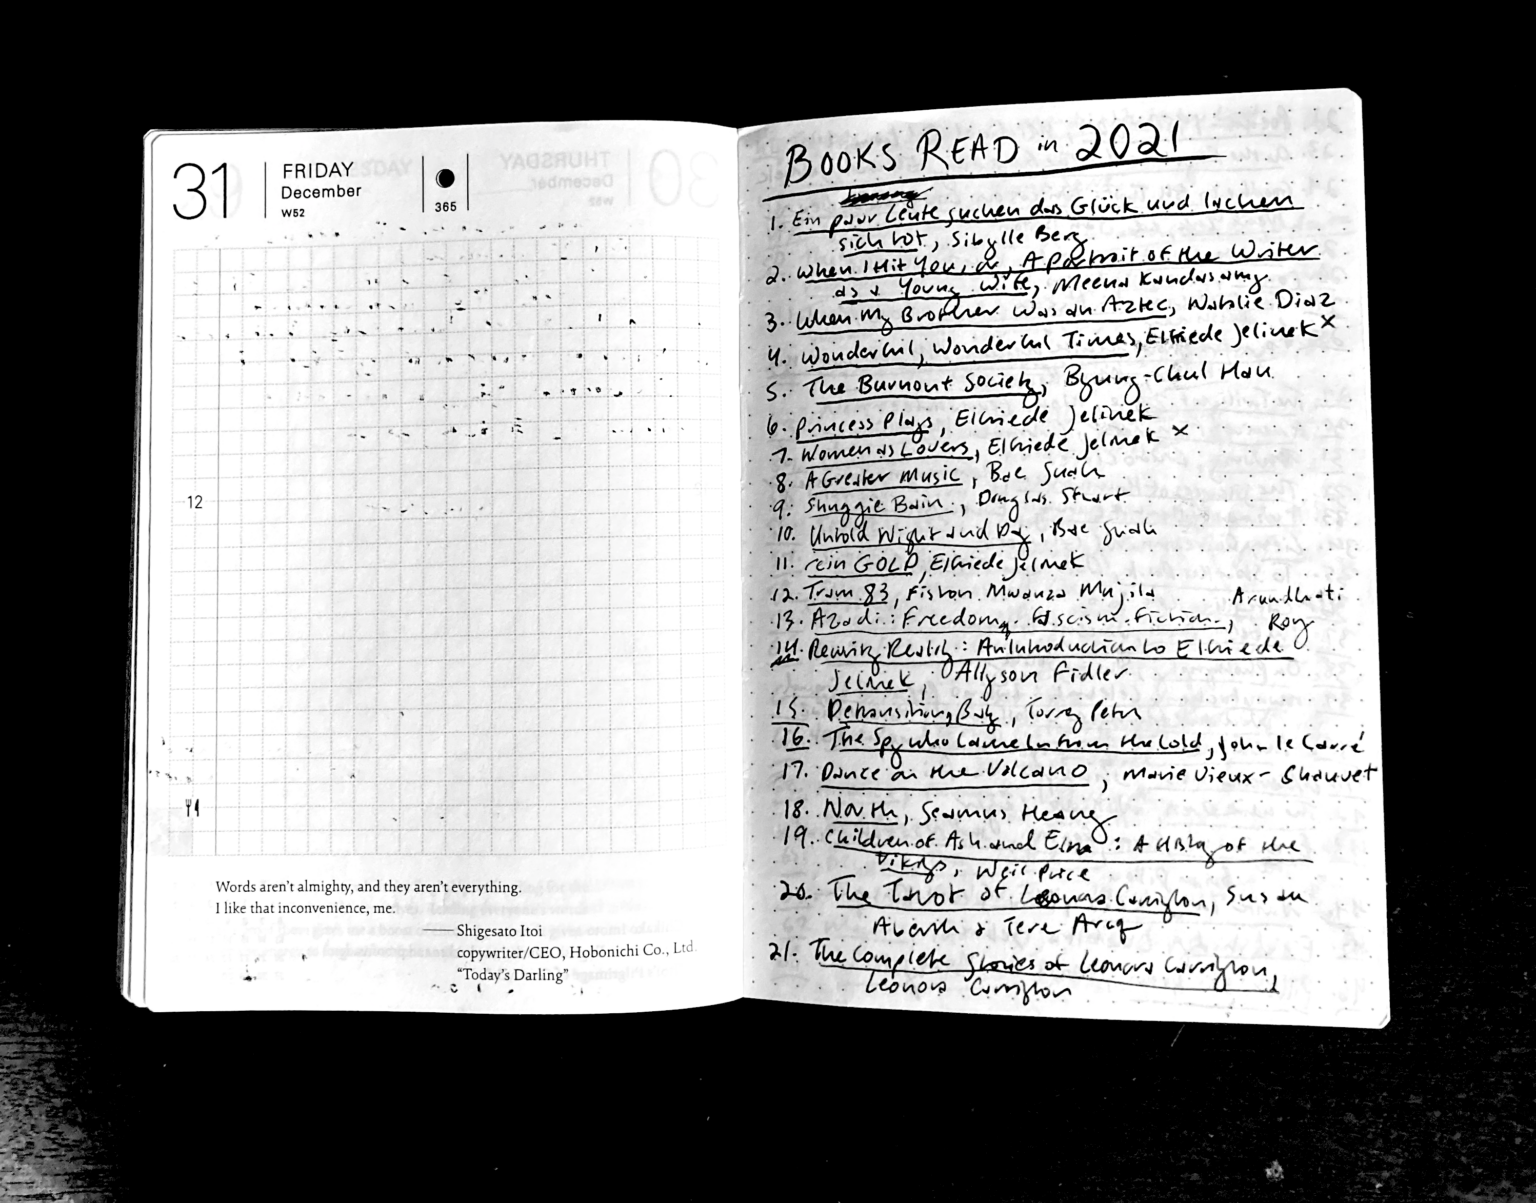 31
FRIDAY
December
W52
365
12
Words aren't almighty, and they aren't everything.
I like that inconvenience, me.
Shigesato Itoi
copywriter/CEO, Hobonichi Co., Ltd.
"Today's Darling"
BOOKS READ in 2021
1. Ein paar Leute suchen das Glück und lachen
sich tot, Sibylle Berg
2. When I Hit You, or, A Portrait of the Writer
as a Young Wife, Meena Kandasamy
3. When My Brother Was an Aztec, Natalie Diaz
4. Wonderful, Wonderful Times, Elfriede Jelinek x
5. The Burnout Society, Byung-Chul Han
6. Princess Plays, Elfriede Jelinek
7. Women as Lovers, Elfriede Jelinek x
8. A Greater Music, Bae Suah
9. Shuggie Bain, Douglas Stuart
10. Untold Night and Day, Bae Suah
11. rein GOLD, Elfriede Jelinek
12. Tram 83, Fiston Mwanza Mujila
13. Azadi: Freedom, Fascism, Fiction, Arundhati
Roy
14. Rewriting Reality: An Introduction to Elfriede
Jelinek, Allyson Fidler
15. Detransition, Baby, Torrey Peters
16. The Spy who Came In from the Cold, John le Carré
17. Dance on the Volcano, Marie Vieux-Chauvet
18. North, Seamus Heaney
19. Children of Ash and Elm: A History of the
Vikings, Neil Price
20. The Tarot of Leonora Carrington, Susan
Aberth & Tere Arcq
21. The Complete Stories of Leonora Carrington,
Leonora Carrington